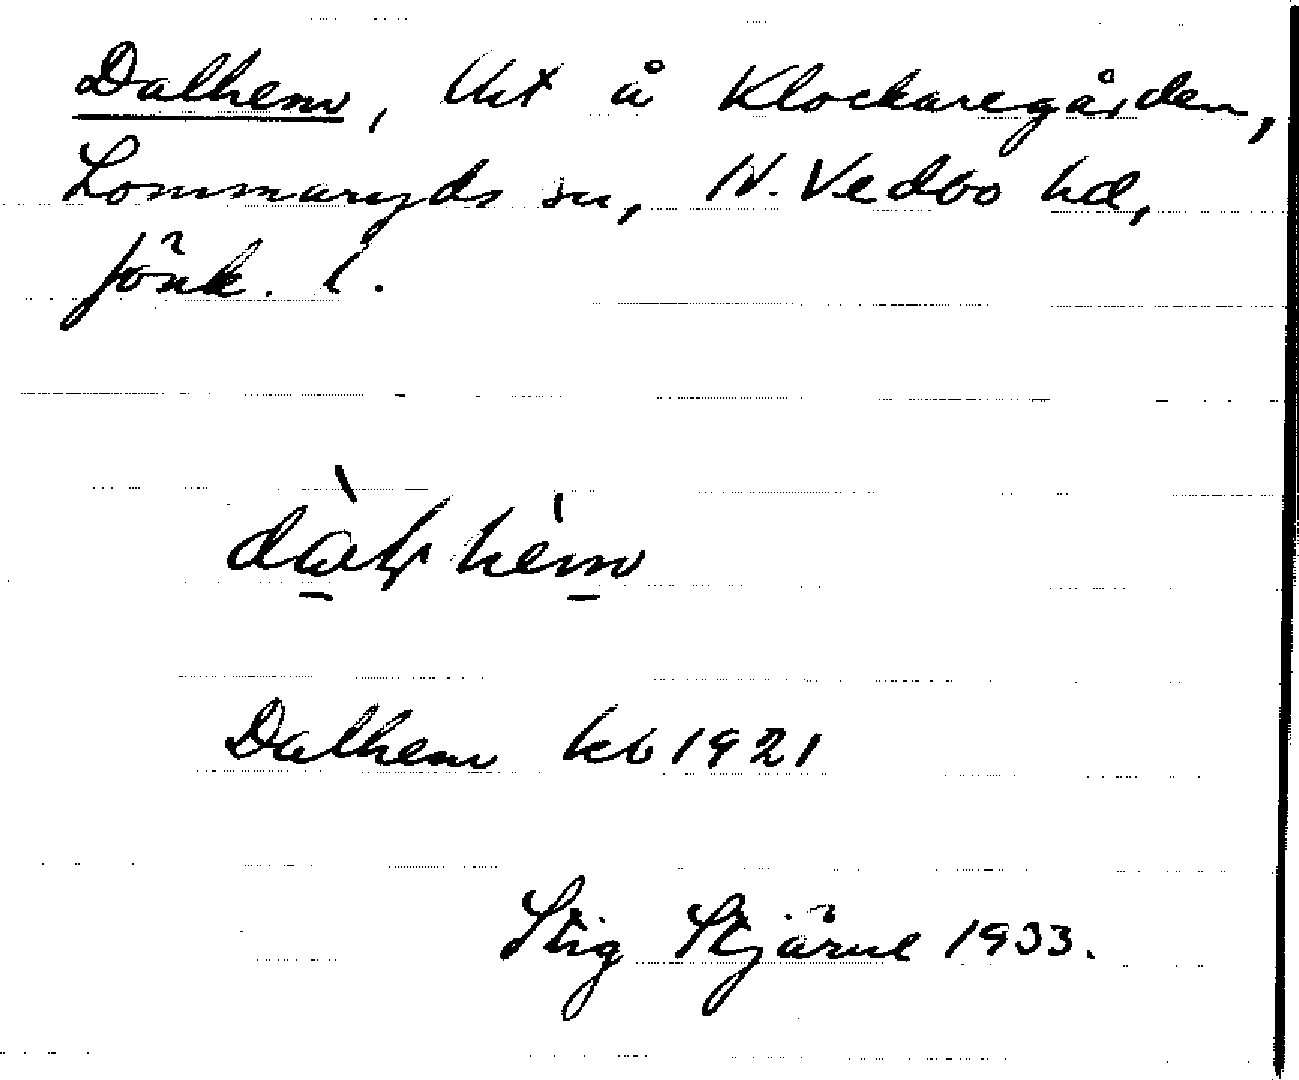 Dalhem, Uxt å Klockaregården,
Lommaryds sn, N. Vedbo hd,
Jönk. l.
Dalhem kb 1921
Stig Stjärne 1933.